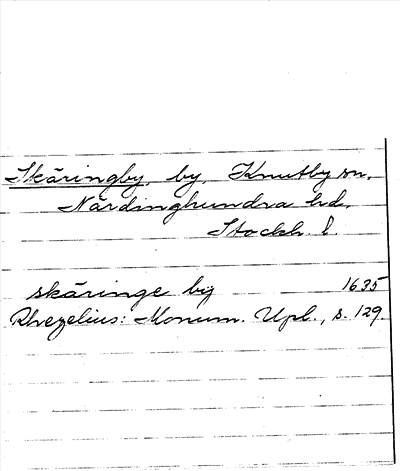 Skäringby, by, Knutby sn,
Närdinghundra hd,
Stockh. l.
skäringe by 1635
Rhezelius: Monum. Upl., s. 129.